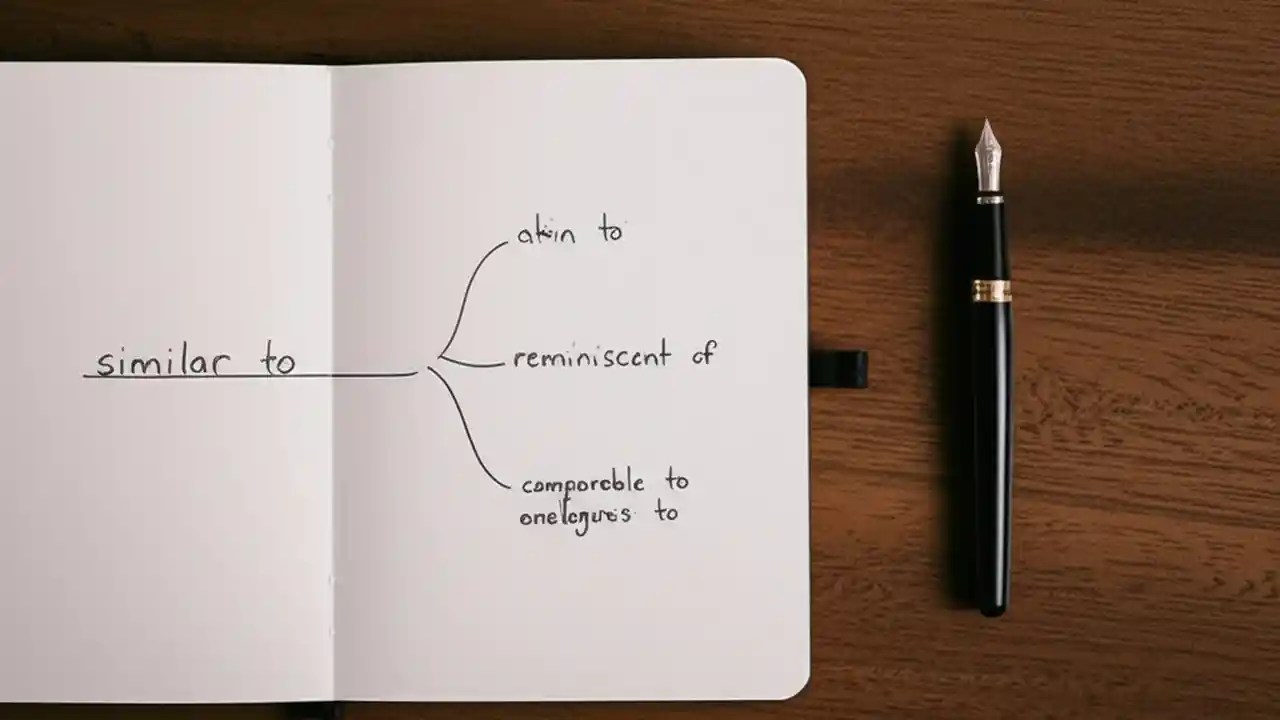 similar to
akin to
reminiscent of
comparable to
to